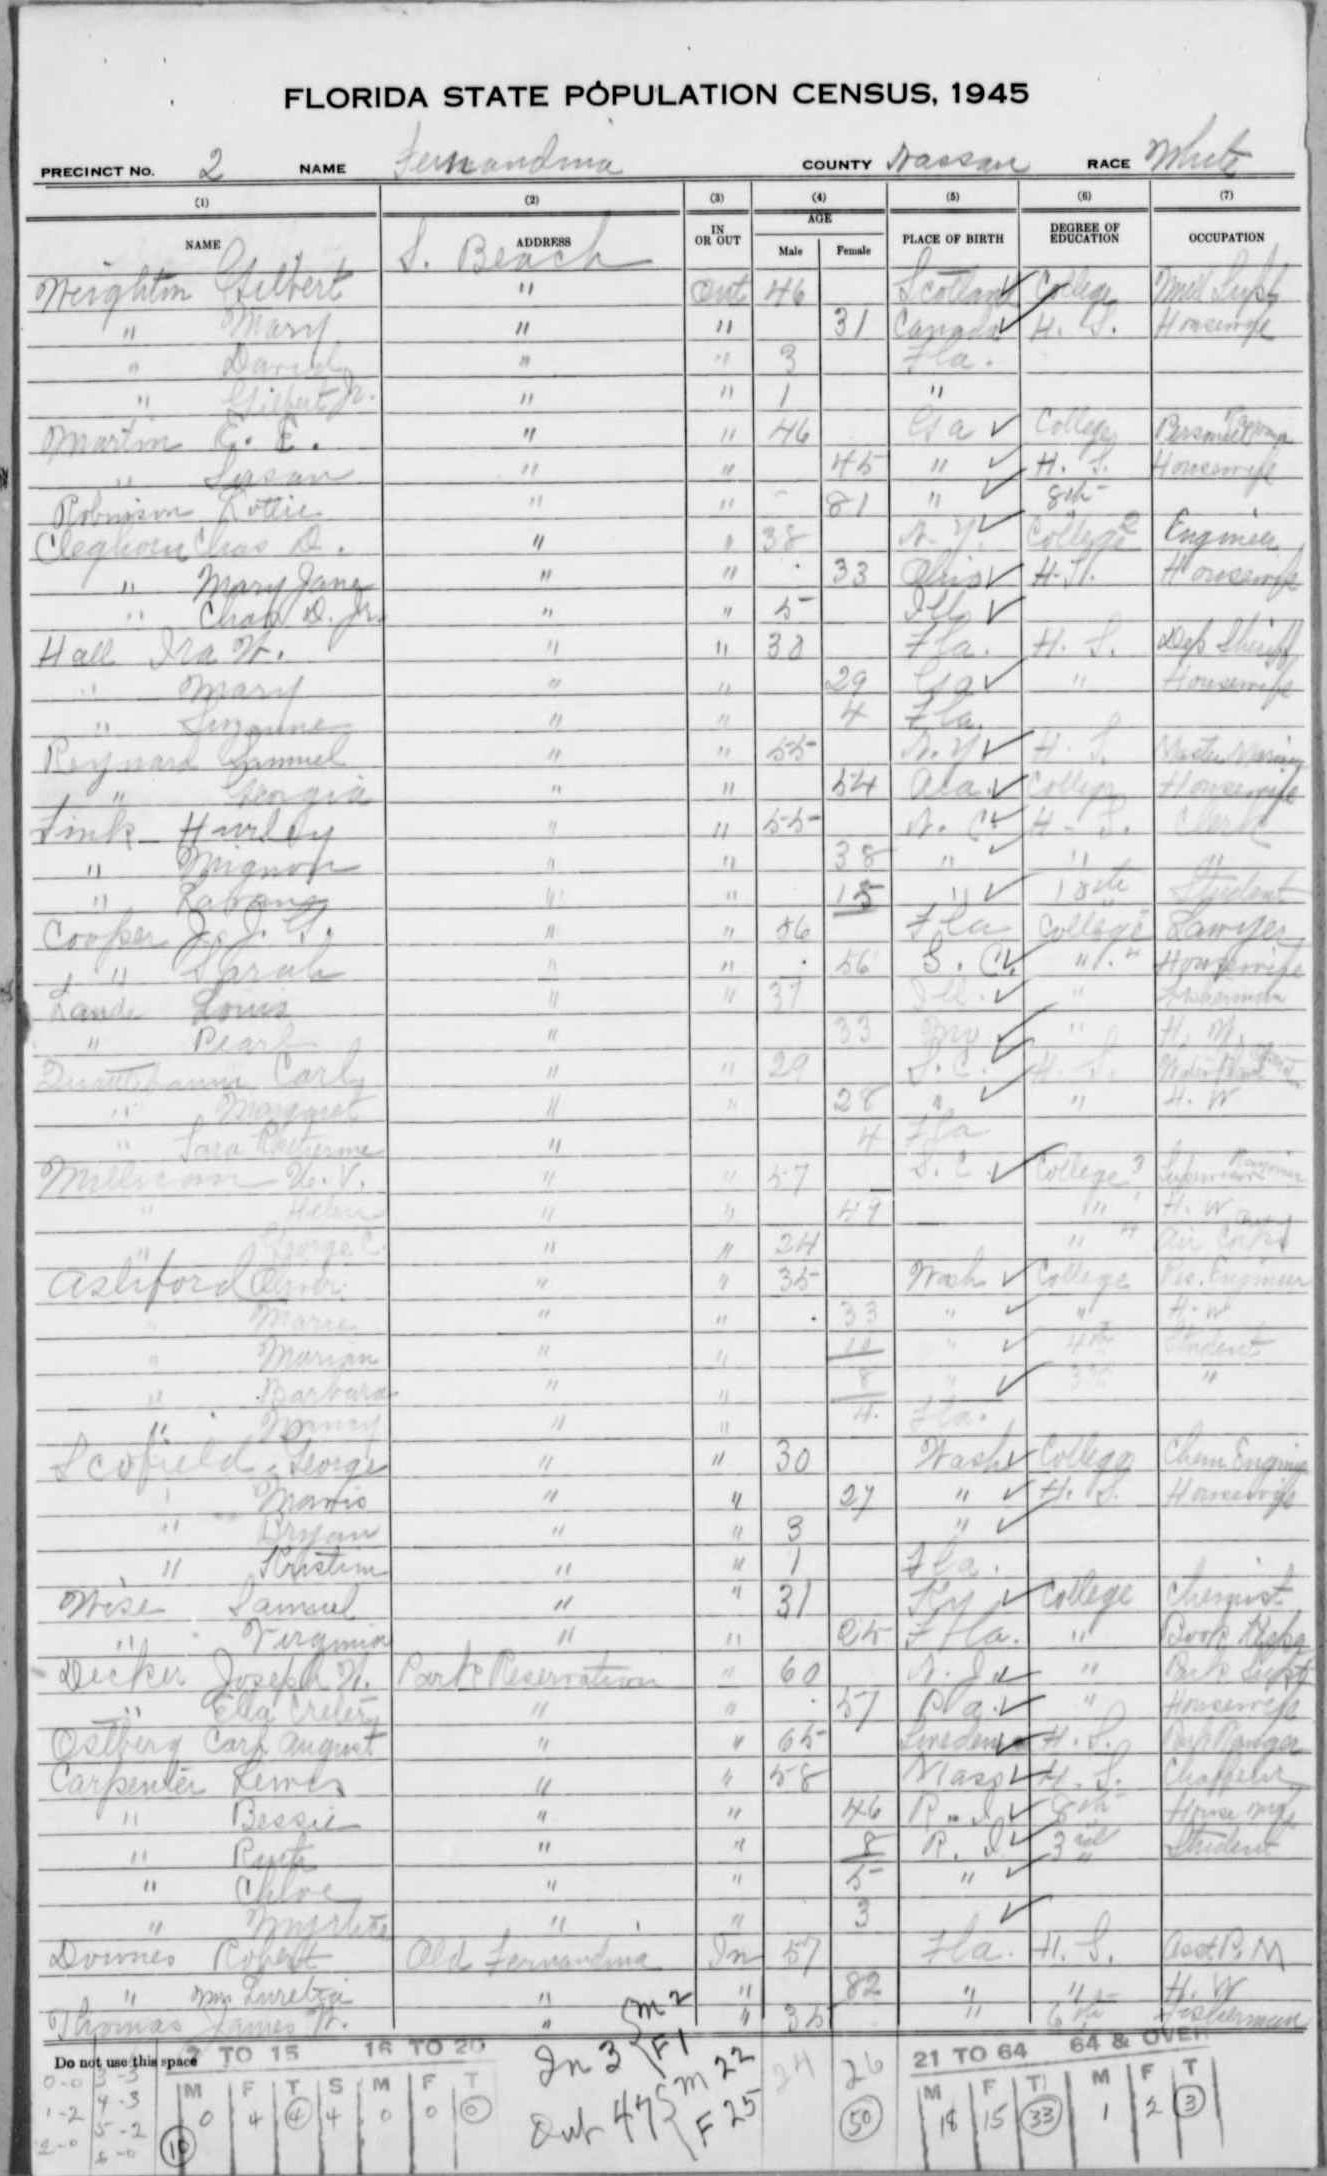 FLORIDA STATE POPULATION CENSUS, 1945
PRECINCT No. 2 NAME Fernandina COUNTY Nassau RACE White
(1) (2) (3) (4) (5) (6) (7)
NAME ADDRESS IN OR OUT AGE Male Female PLACE OF BIRTH DEGREE OF EDUCATION OCCUPATION
S. Beach
Weighton Gilbert " Out 46 Scotland College Mill Supt
" Mary " " 31 Canada H. S. Housewife
" David " " 3 Fla.
" Gilbert Jr. " " 1 "
Martin E. E. " " 46 Ga College Personnel
" Susan " " 45 " H. S. Housewife
Robinson Lottie " " 81 " 8th
Cleghorn Chas D. " " 38 N. Y. College 2 Engineer
" Mary Jane " " 33 Ohio H. S. Housewife
" Chas D. Jr. " " 5 Ill
Hall Ira W. " " 38 Fla. H. S. Dep Sheriff
" Mary " " 29 Ga " Housewife
" Suzanne " " 4 Fla.
Reynard Samuel " " 55 N. Y. H. S. Master
" Georgia " " 54 Ala. College Housewife
Fink Hurley " " 55 N. C. H. S. Clerk
" Mignon " " 38 " " "
" " " 15 " 10th Student
Cooper J. J. G. " " 56 Fla College Lawyer
" Sarah " " 56 S. C. " 4 Housewife
Lande Louis " " 37 Ill. "
" Pearl " " 33 Mo. " H. W.
Carl " " 29 S. C. H. S.
" Margaret " " 28 " " H. W
" Sara Catherine " " 4 Fla
Millican U. V. " " 57 S. C. College 3
" Helen " " 49 " 1 H. W
" George C. " " 24 " 4 Air Corps
Ashford Oliver " " 35 Wash College Res. Engineer
" Marie " " 33 " " H. W
" Marian " " 10 " 4th Student
" Barbara " " 8 " 3rd "
" Nancy " " 4 Fla.
Scofield George " " 30 Wash College Chem Engineer
" " " 27 " H. S. Housewife
" Bryan " " 3 "
" Kristine " " 1 Fla.
Wise Samuel " " 31 Ky College Chemist
" Virginia " " 25 Fla. " Book
Decker Joseph H. Park Reservation " 60 N. J. " Park Supt
" Ella " " 57 Pa. " Housewife
Ostberg Carl August " " 65 Sweden H. S. Park Ranger
Carpenter Lewis " " 58 Mass H. S.
" Bessie " " 46 R. I. 8th House wife
" Ruth " " 8 R. I. 3rd Student
" Chloe " " 5 " "
" " " 3
Downes Robert Old Fernandina In 57 Fla. H. S. Asst. P. M
" Mrs " " 82 " " H. W
Thomas James W. " " 35 " 6th Fisherman
Do not use this space
TO 15 16 TO 20 In 3 M 2 F 1 24 26 21 TO 64 64 & OVER
0-0 3-3 M F T S M F T Out 47 M 22 F 25 M F T M F T
1-2 4-3 0 4 4 4 0 0 0 50 18 15 33 1 2 3
2-0 5-2 10
6-0